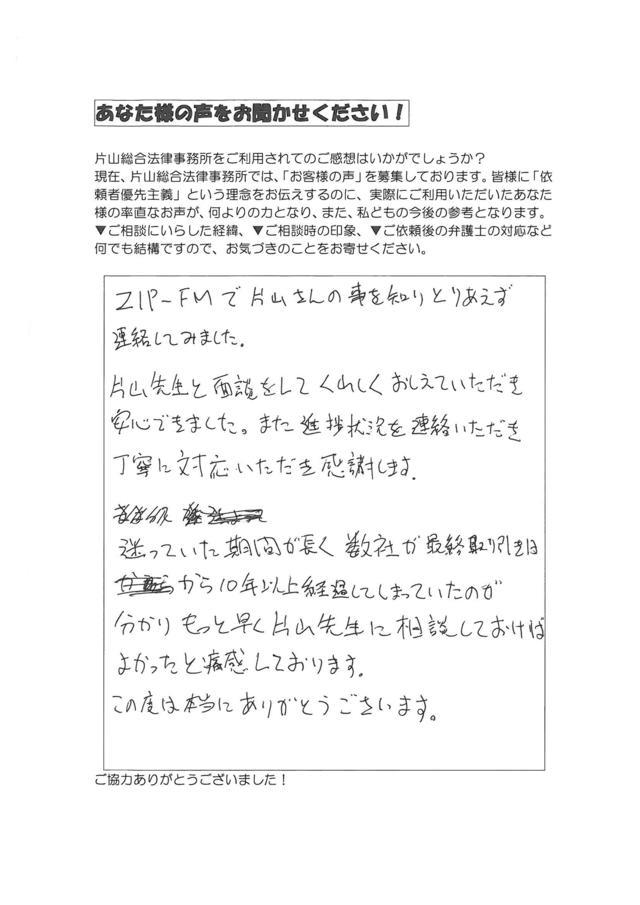 あなた様の声をお聞かせください！
片山総合法律事務所をご利用されてのご感想はいかがでしょうか？
現在、片山総合法律事務所では、「お客様の声」を募集しております。皆様に「依
頼者優先主義」という理念をお伝えするのに、実際にご利用いただいたあなた
様の率直なお声が、何よりの力となり、また、私どもの今後の参考となります。
▼ご相談にいらした経緯、▼ご相談時の印象、▼ご依頼後の弁護士の対応など
何でも結構ですので、お気づきのことをお寄せください。
ZIP-FMで片山さんの事を知りとりあえず
連絡してみました。
片山先生と面談をしてくわしくおしえていただき
安心できました。また進捗状況を連絡いただき
丁寧に対応いただき感謝します。
迷っていた期間が長く数社が最終取り引きは
から10年以上経過してしまっていたのが
分かりもっと早く片山先生に相談しておけば
よかったと痛感しております。
この度は本当にありがとうございます。
ご協力ありがとうございました！